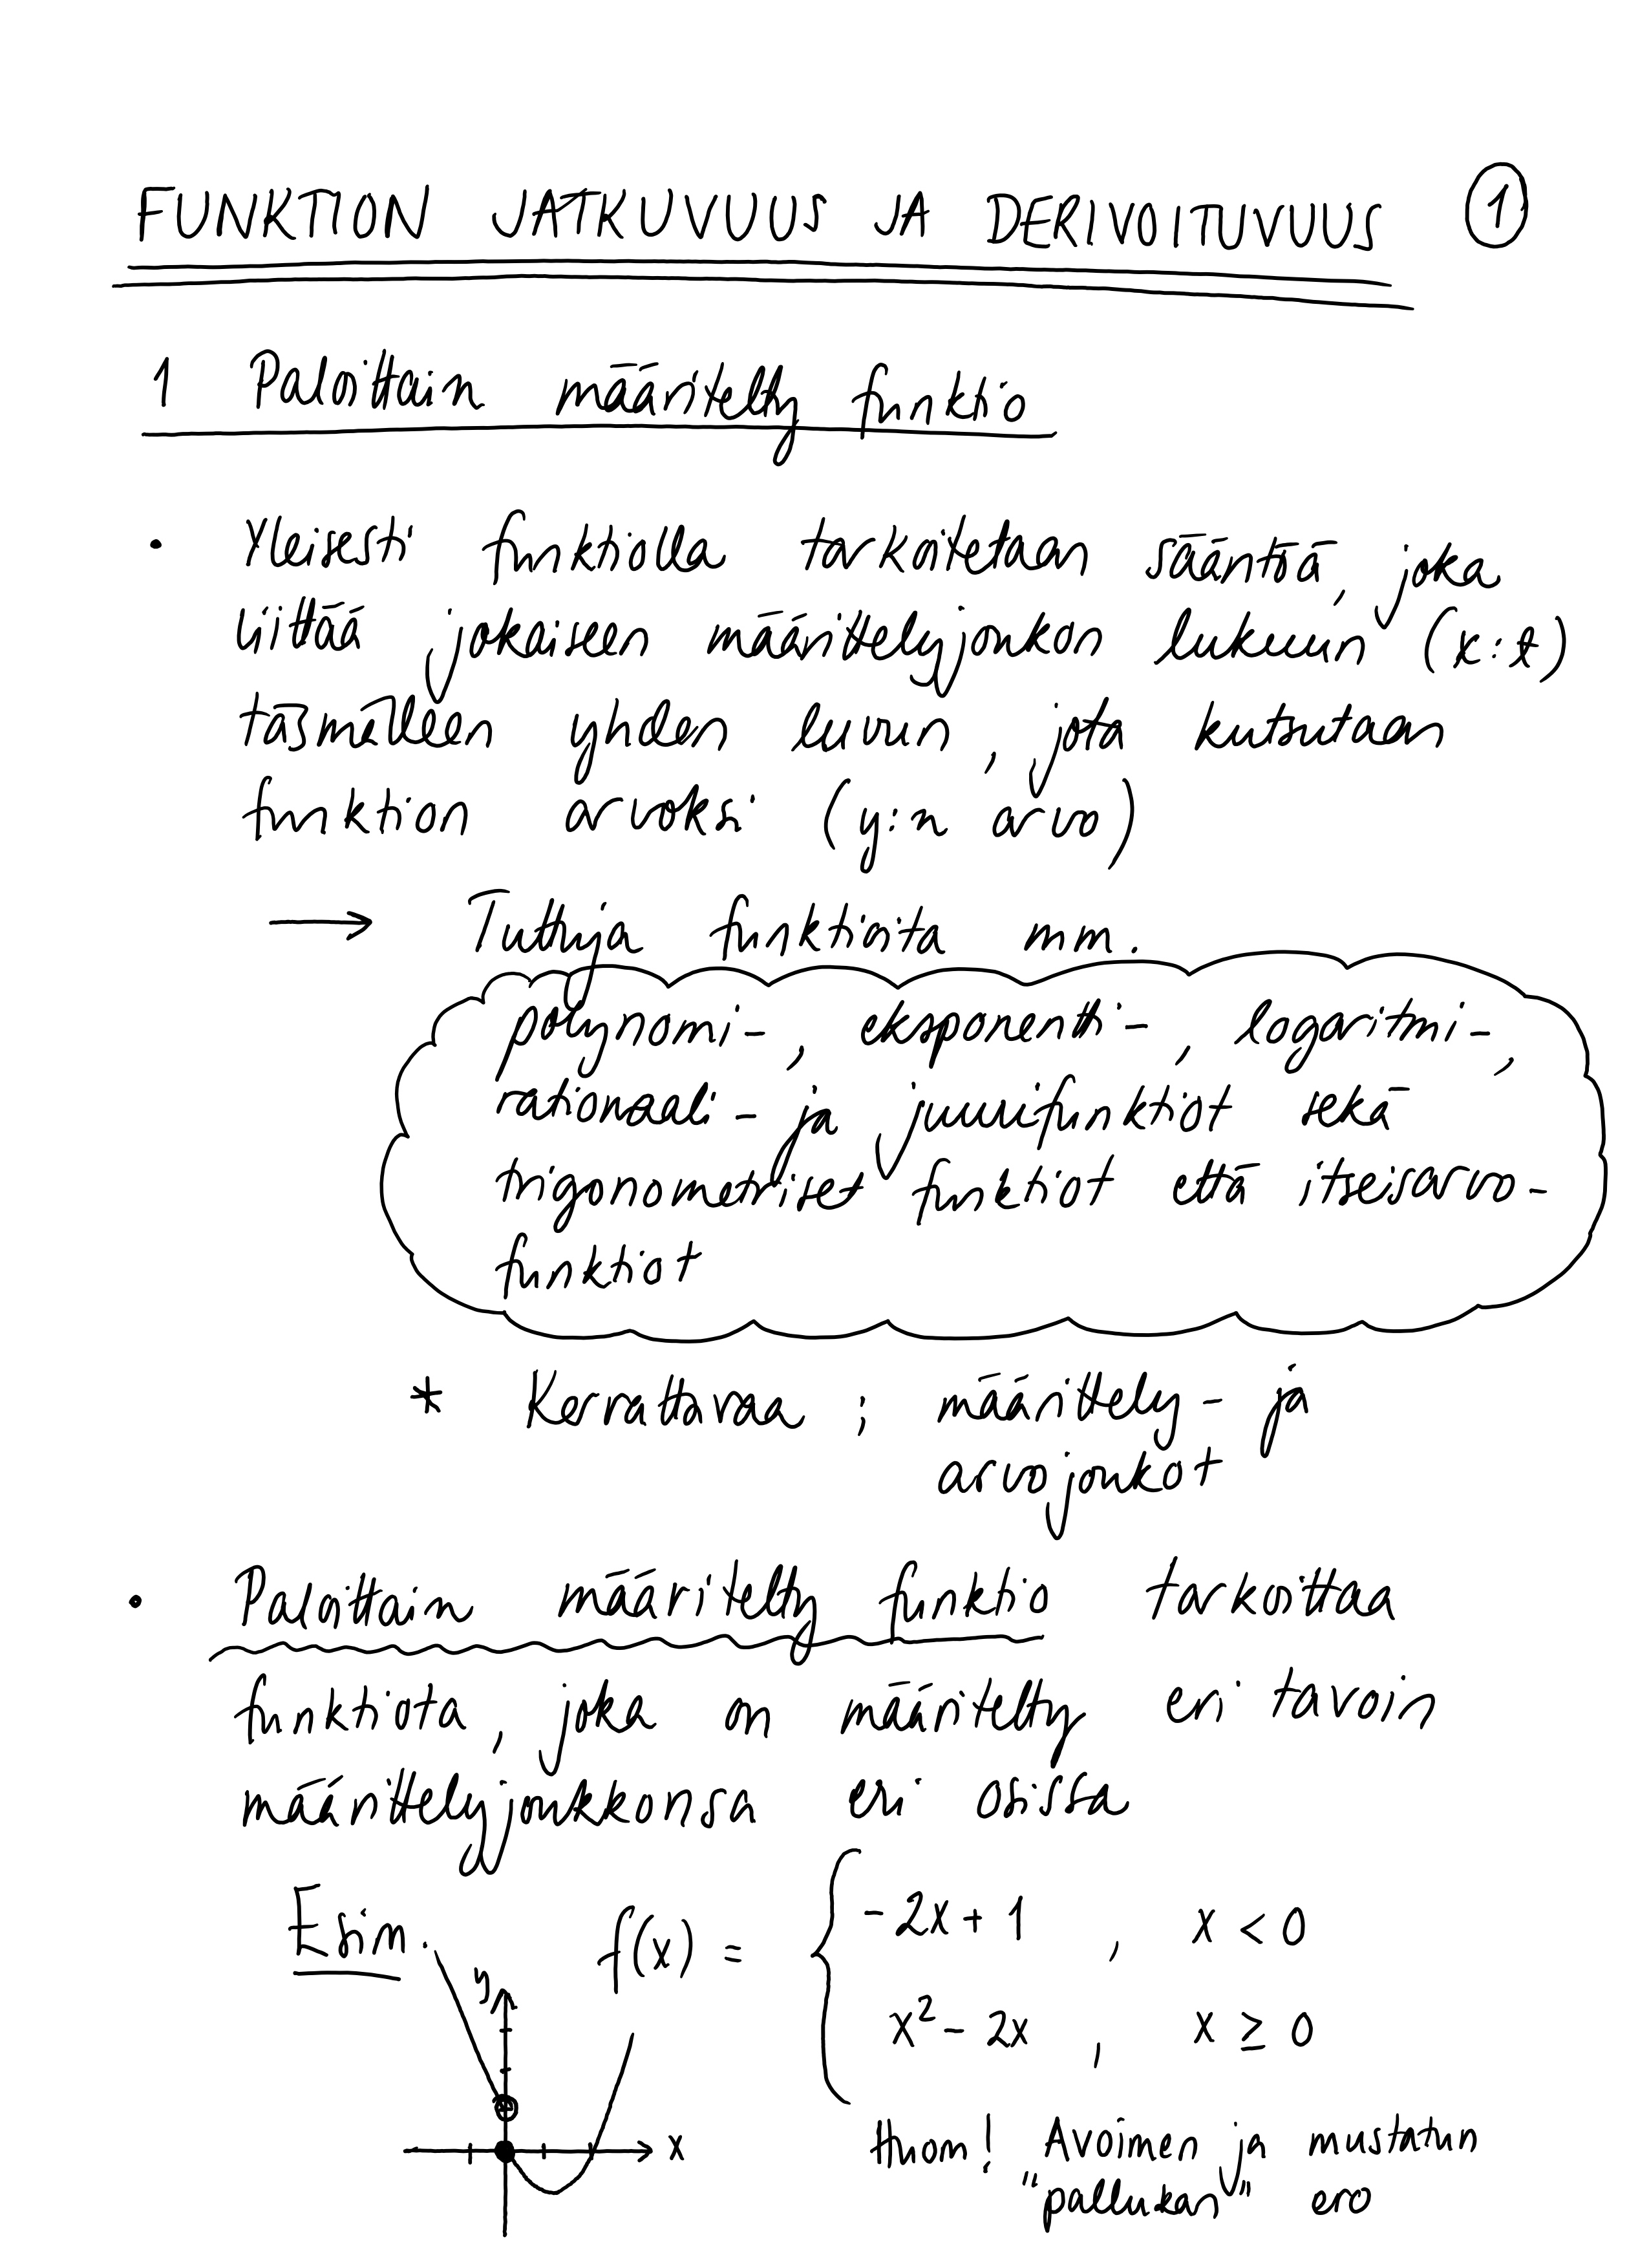 FUNKTION JATKUVUUS JA DERIVOITUVUUS 1
1 Paloittain määritelty funktio
• Yleisesti funktiolla tarkoitetaan sääntöä, joka
liittää jokaiseen määrittelyjoukon lukuun (x:t)
täsmälleen yhden luvun, jota kutsutaan
funktion arvoksi (y:n arvo)
→ Tuttuja funktioita mm.
polynomi-, eksponentti-, logaritmi-,
rationaali- ja juurifunktiot sekä
trigonometriset funktiot että itseisarvo-
funktiot
* Kerrattavaa ; määrittely- ja
arvojoukot
• Paloittain määritelty funktio tarkoittaa
funktiota, joka on määritelty eri tavoin
määrittelyjoukkonsa eri osissa
Esim. f(x) = { -2x + 1 , x < 0
x² - 2x , x ≥ 0
y
x
Huom! Avoimen ja mustatun
"pallukan" ero